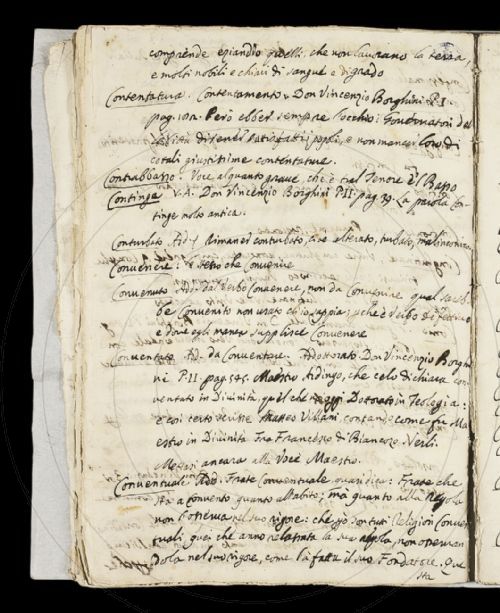 comprende eziandio quelli che non lavorano la terra,
e molti nobili e chiari di sangue e di grado
Contentatura. Contentamento. Don Vincenzio Borghini P. I.
pag. Però ebber sempre l'occhio i Governatori del
di tener satisfatti i popoli, e non mancar loro di
cotali giustissime contentature.
Contrabbasso. Voce alquanto grave, che è tral Tenore e'l Basso
Continge V.A. Don Vincenzio Borghini P.II. pag. 39. La parola Con-
tinge molto antica.
Conturbato. Ad. Rimaner conturbato, cioè alterato, turbato,
Convenere: lo stesso che Convenire
Convenuto Ad. dal Verbo Convenere, non da Convenire qual sareb-
be Convenito non usato ch'io sappia; perchè è Verbo difettivo
e dove egli manca supplisce Convenere
Conventato. Ad. da Conventare. Addottorato. Don Vincenzio Borghi-
ni P.II. pag. 545. Maestro Aldingo, che celo dichiara con-
ventato in Divinità, quel che oggi Dottorato in Teologia:
e così certo scrisse Matteo Villani, contando come fu Ma-
estro in Divinità Fra Francesco di Biancozo Nerli.
ancora alla Voce Maestro.
Conventuale. Add. Frate Conventuale quasi dica: Frate che
sta a convento quanto all'abito; ma quanto alla regola
non l'osserva nel suo rigore: che si dontuti Religion Conven-
tuali, quei che anno relassata la sua regola, non osservan-
dola nel suo rigore, come l'à fatta il suo Fondatore. Que-
sta